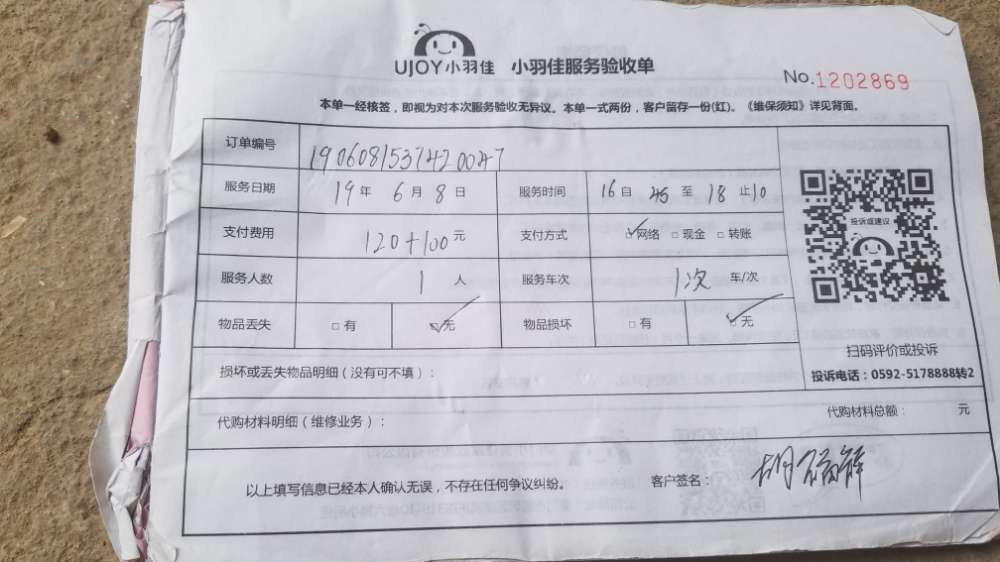 UJOY小羽佳 小羽佳服务验收单
No.1202869
本单一经核签，即视为对本次服务验收无异议。本单一式两份，客户留存一份(红)。《维保须知》详见背面。
订单编号 1906081537420047
服务日期 19年 6月 8日 服务时间 16自 45 至 18止10
支付费用 120+100元 支付方式 ☑网络 □现金 □转账
服务人数 1 人 服务车次 1次 车/次
物品丢失 □有 ☑无 物品损坏 □有 ☑无
投诉或建议
扫码评价或投诉
投诉电话：0592-5178888转2
损坏或丢失物品明细（没有可不填）：
代购材料明细（维修业务）： 代购材料总额： 元
以上填写信息已经本人确认无误，不存在任何争议纠纷。 客户签名：